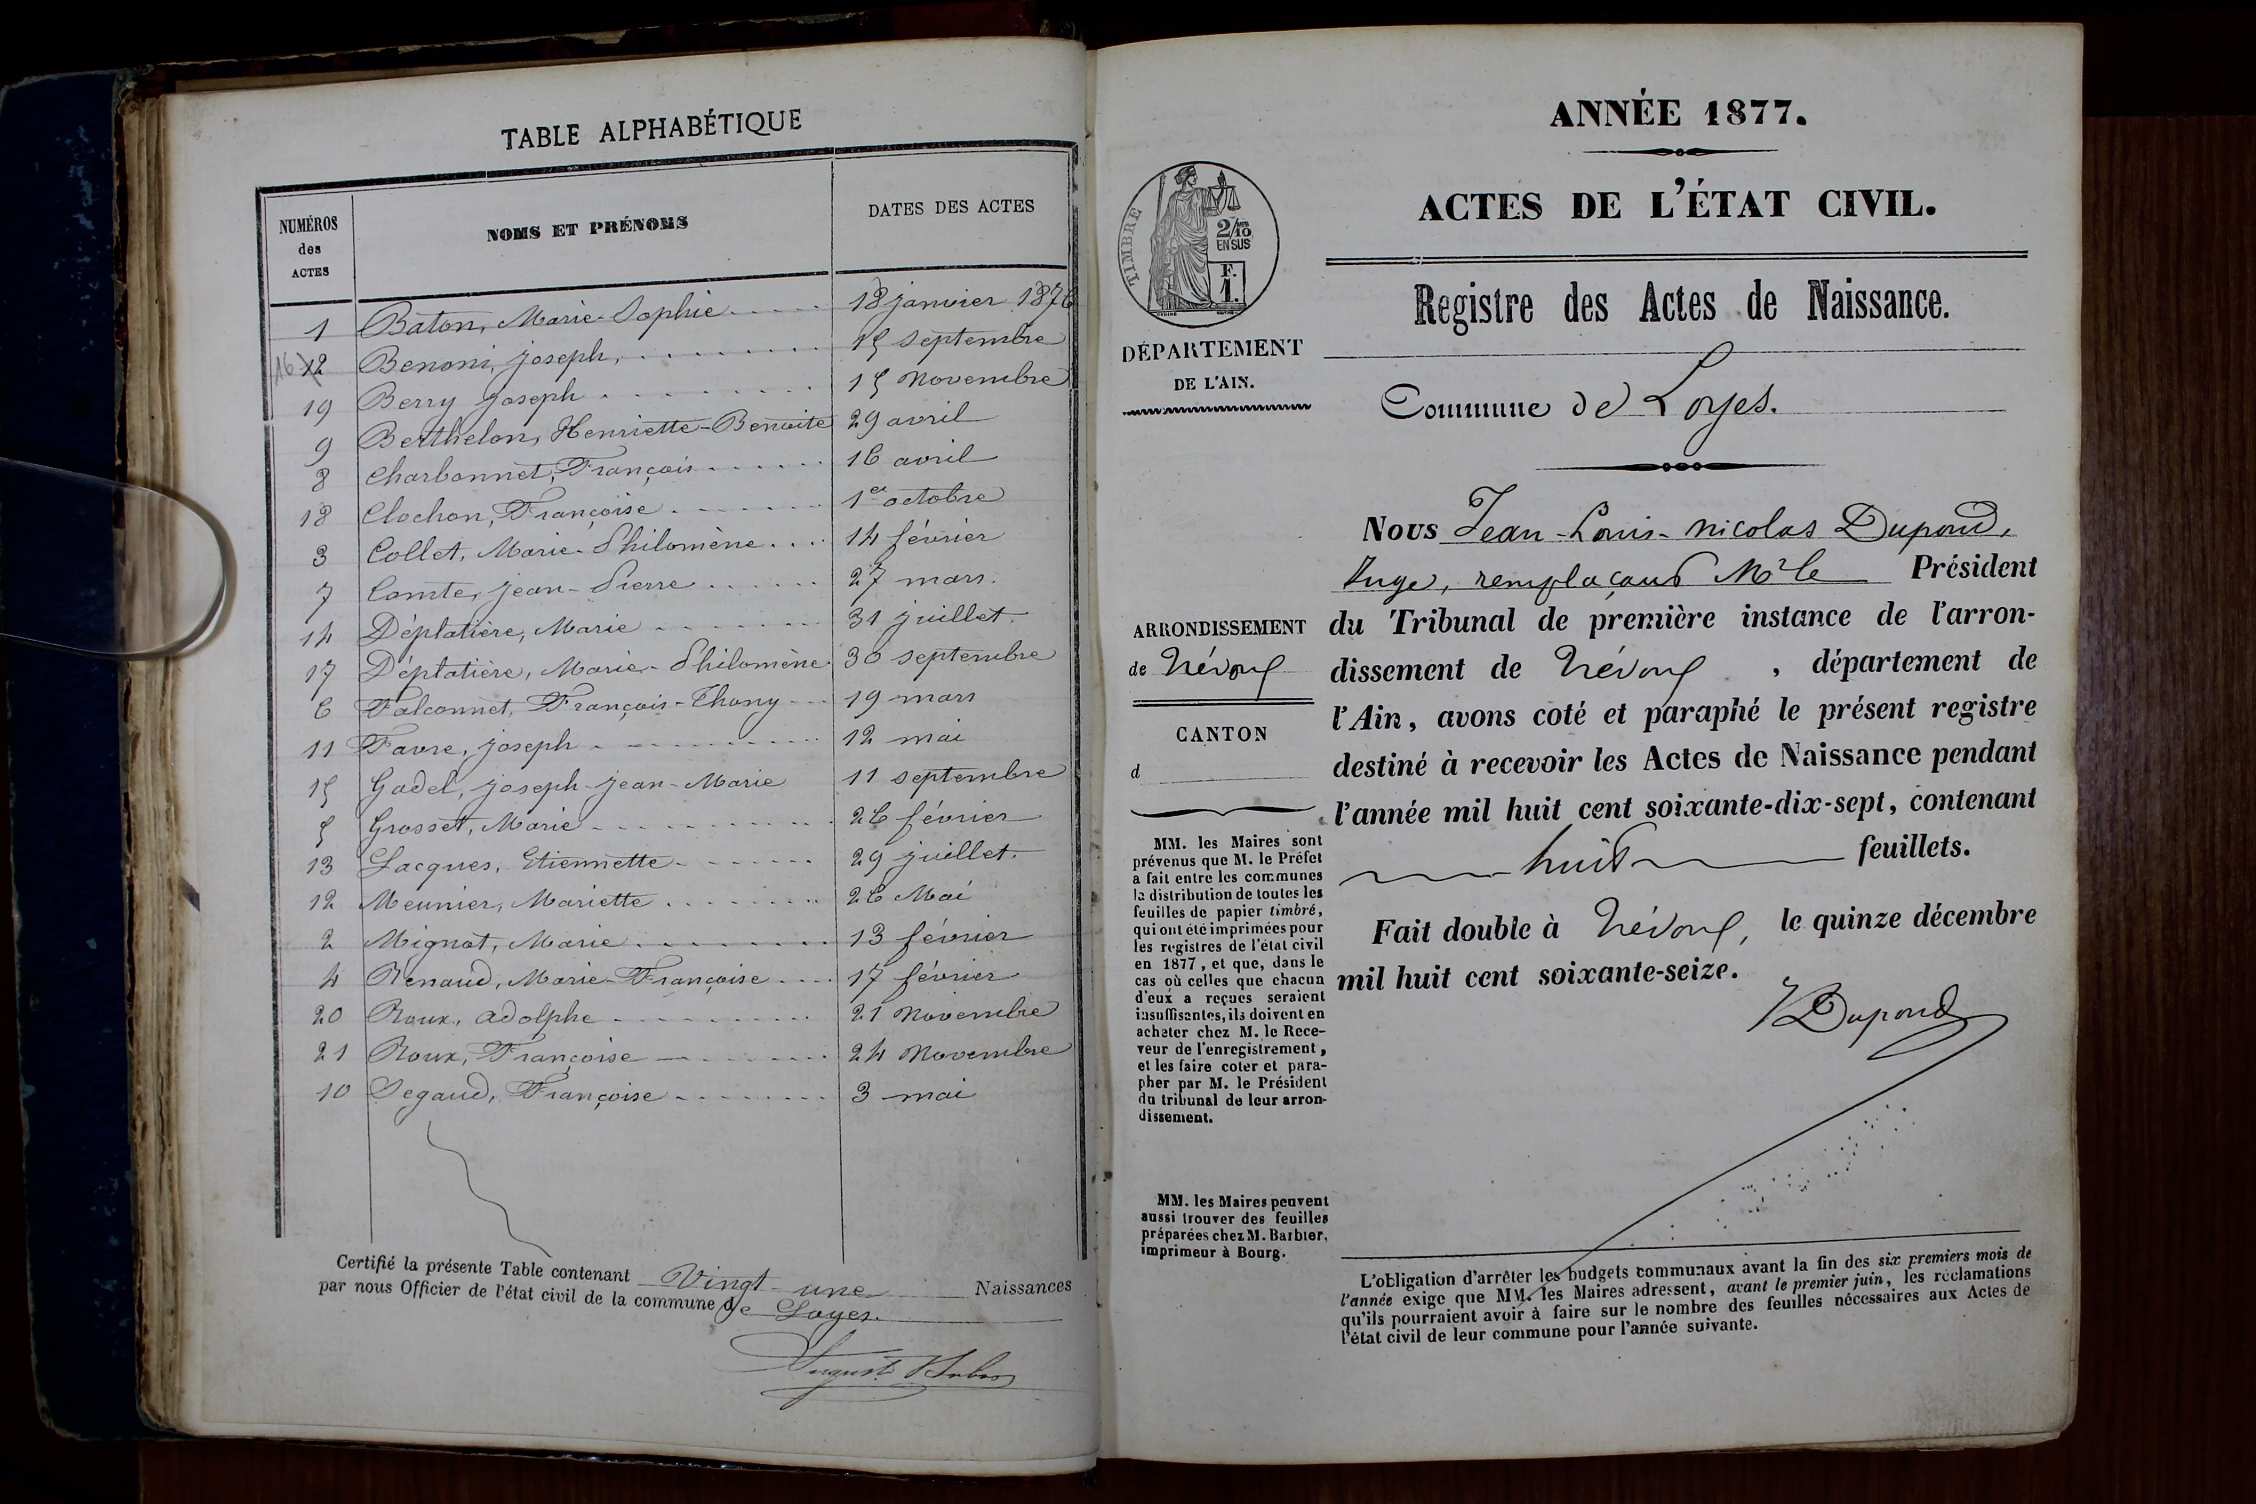 TABLE ALPHABÉTIQUE
NUMÉROS des ACTES
NOMS ET PRÉNOMS
DATES DES ACTES
1 Baton, Marie-Sophie 18 janvier 1876
16 12 Benoni, joseph, 15 septembre
19 Berry joseph 15 novembre
9 Berthelon, Henriette-Benoite 29 avril
8 Charbonnet, François 16 avril
18 Clochon, Françoise 1er octobre
3 Collet, Marie-Philomène 14 février
7 Comte, jean-Pierre 27 mars.
14 Déplatière, Marie 31 juillet.
17 Déplatière, Marie-Philomène 30 septembre
6 Falconnet, François-Thony 19 mars
11 Favre, joseph 12 mai
15 Gadel, joseph-jean-Marie 11 septembre
5 Grosset, Marie 26 février
13 Jacques, Etiennette 29 juillet.
12 Meunier, Mariette 26 Mai
2 Mignot, Marie 13 février
4 Renaud, Marie-Françoise 17 février
20 Roux, adolphe 21 novembre
21 Roux, Françoise 24 novembre
10 Segaud, Françoise 3 mai
Certifié la présente Table contenant Vingt une Naissances
par nous Officier de l'état civil de la commune de Loyes.
ANNÉE 1877.
ACTES DE L'ÉTAT CIVIL.
TIMBRE
2/10
EN SUS
F.
1.
Registre des Actes de Naissance.
DÉPARTEMENT
DE L'AIN.
Commune de Loyes.
Nous Jean-Louis-Nicolas Dupond,
Juge, remplaçant Mr le Président
du Tribunal de première instance de l'arron-
dissement de Trévoux, département de
l'Ain, avons coté et paraphé le présent registre
destiné à recevoir les Actes de Naissance pendant
l'année mil huit cent soixante-dix-sept, contenant
huit feuillets.
Fait double à Trévoux, le quinze décembre
mil huit cent soixante-seize.
Dupond
ARRONDISSEMENT
de Trévoux
CANTON
d
MM. les Maires sont
prévenus que M. le Préfet
a fait entre les communes
la distribution de toutes les
feuilles de papier timbré,
qui ont été imprimées pour
les registres de l'état civil
en 1877, et que, dans le
cas où celles que chacun
d'eux a reçues seraient
insuffisantes, ils doivent en
acheter chez M. le Rece-
veur de l'enregistrement,
et les faire coter et para-
pher par M. le Président
du tribunal de leur arron-
dissement.
MM. les Maires peuvent
aussi trouver des feuilles
préparées chez M. Barbier,
imprimeur à Bourg.
L'obligation d'arrêter les budgets communaux avant la fin des six premiers mois de
l'année exige que MM. les Maires adressent, avant le premier juin, les réclamations
qu'ils pourraient avoir à faire sur le nombre des feuilles nécessaires aux Actes de
l'état civil de leur commune pour l'année suivante.